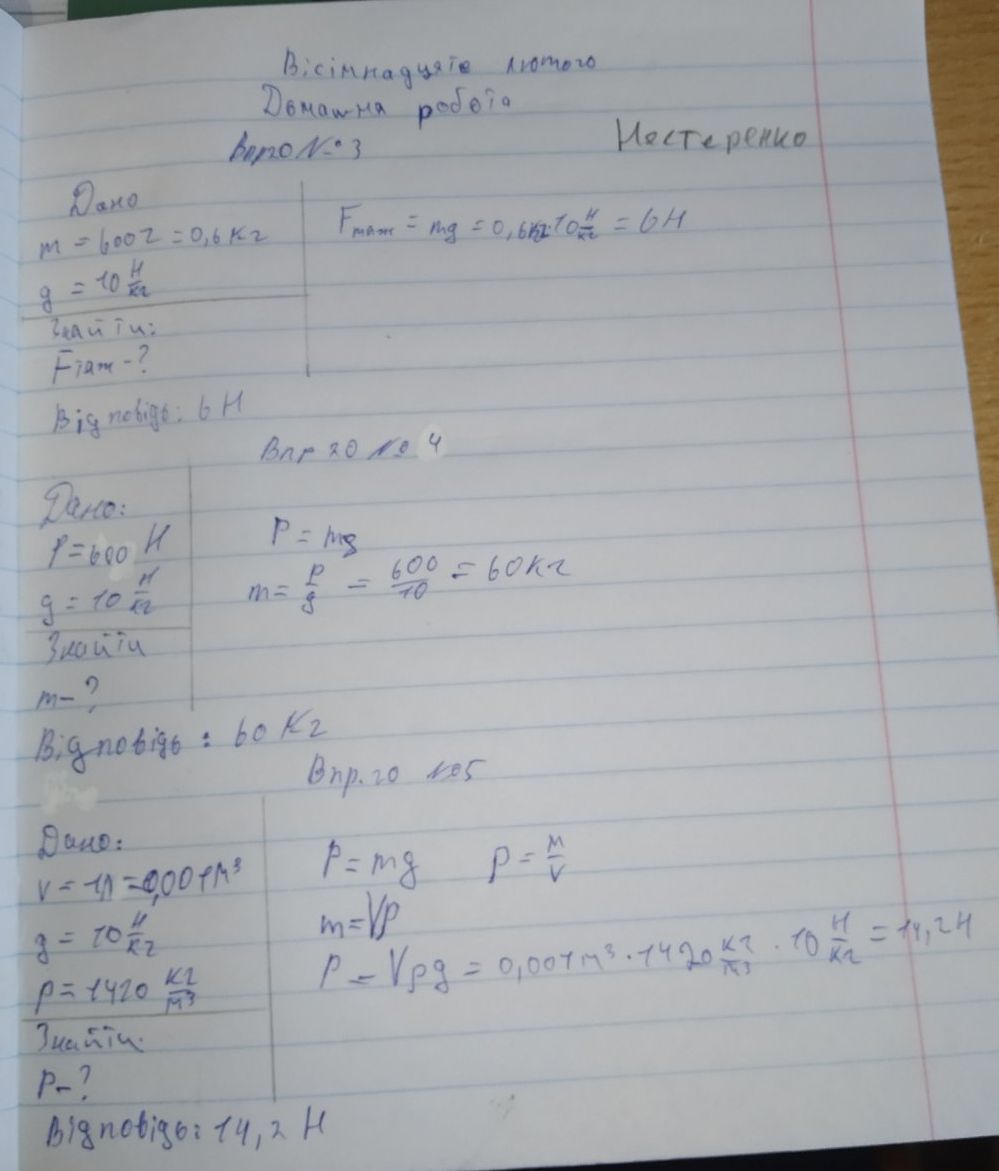 Вісімнадцяте лютого
Домашня робота
Нестеренко
Впр20 №3
Дано
m = 600г = 0,6 кг
g = 10 Н/кг
Знайти:
Fтяж - ?
Fтяж = mg = 0,6кг·10 Н/кг = 6Н
Відповідь: 6 Н
Впр 20 №4
Дано:
P = 600 Н
g = 10 Н/кг
Знайти
m - ?
P = mg
m = P/g = 600/10 = 60кг
Відповідь: 60 кг
Впр. 20 №5
Дано:
V = 1л = 0,001м³
g = 10 Н/кг
ρ = 1420 кг/м³
Знайти
P - ?
P = mg ρ = m/V
m = Vρ
P = Vρg = 0,001м³ · 1420 кг/м³ · 10 Н/кг = 14,2Н
Відповідь: 14,2 Н